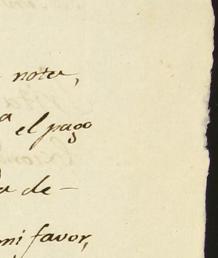 nota,
el pago
de-
mi favor,